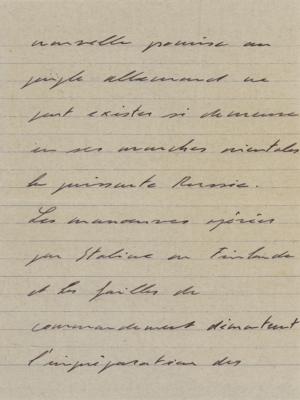 nouvelle promise au
peuple allemand ne
peut exister si demeure
en ses marches orientales
la puissante Russie.
Les manœuvres opérées
par Staline en Finlande
et les failles de
commandement démontrent
l'impréparation des